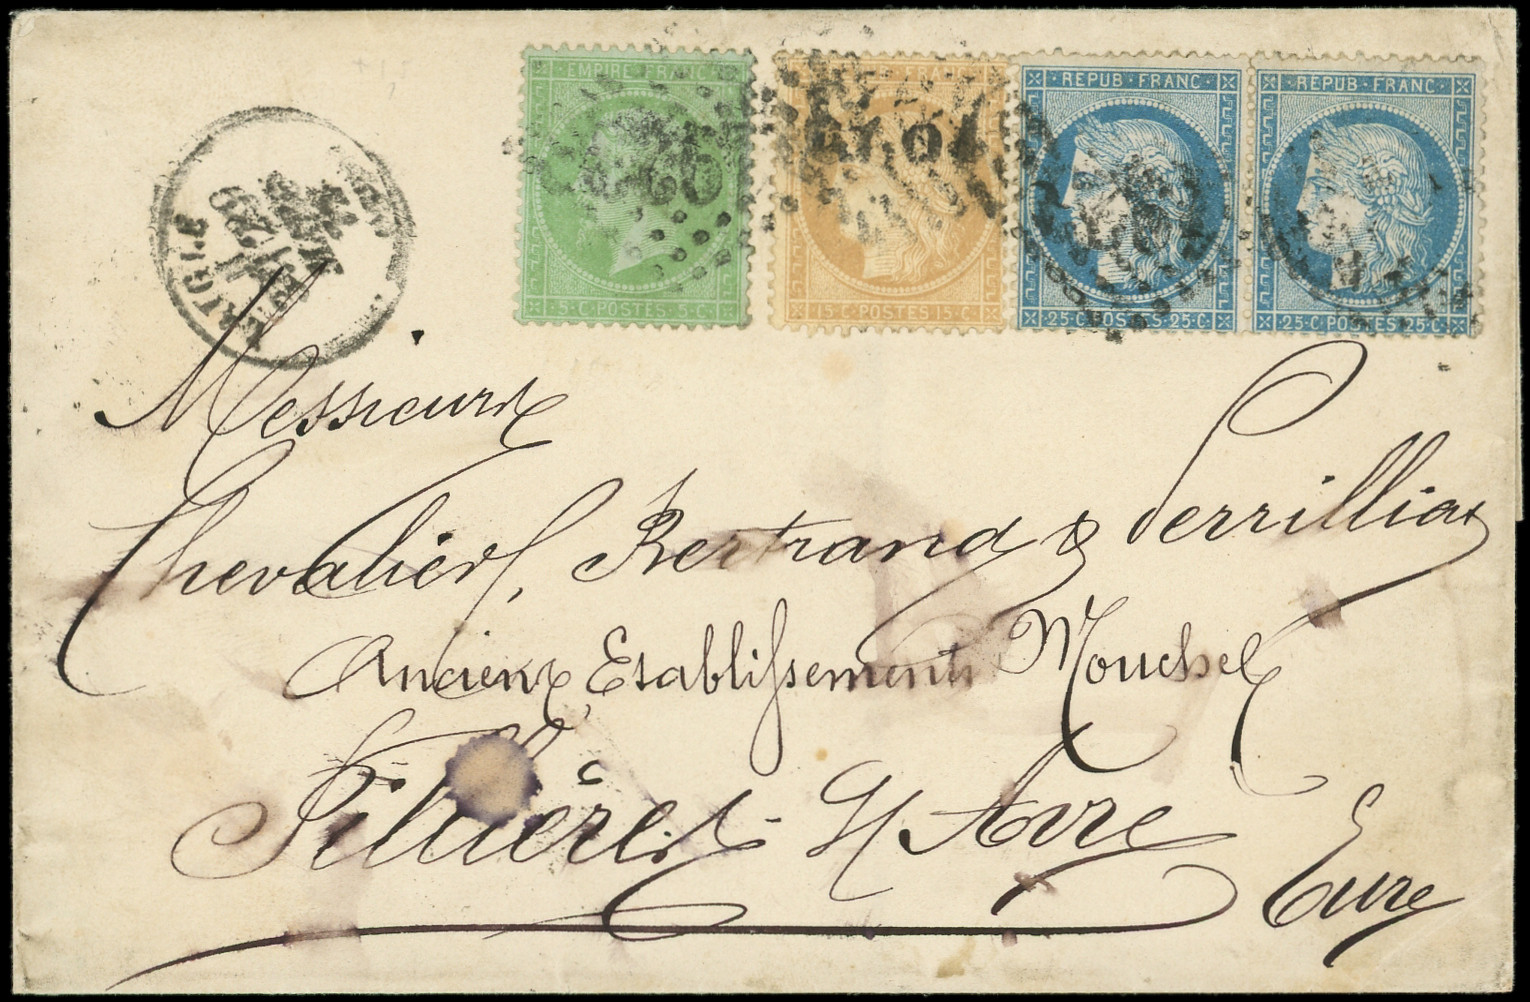 EMPIRE FRANC
5·C·POSTES·5·C·
15·C·POSTES·15·C·
REPUB·FRANC·
25·C·POSTES·25·C·
REPUB·FRANC·
25·C·POSTES·25·C·
Messieurs
Chevalier, Bertrand & Perrillias
Anciens Etablissements Mouchel
Tillières s/ Avre
Eure